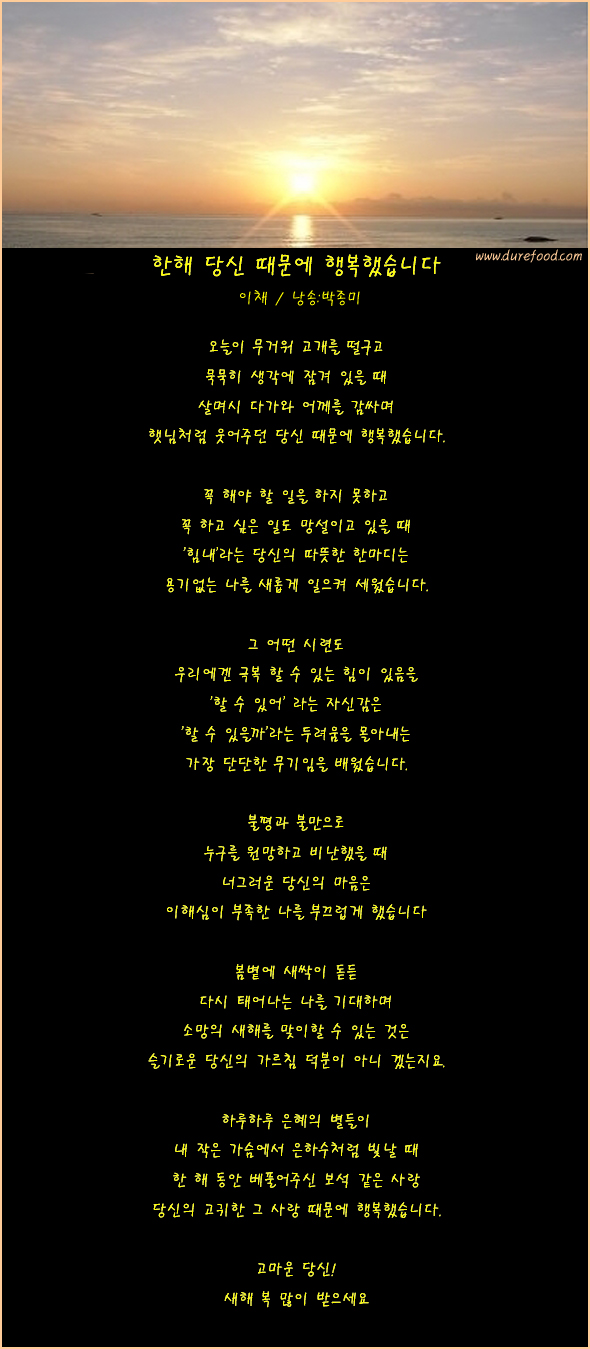 한해 당신 때문에 행복했습니다
www.durefood.com
이채 / 낭송:박종미
오늘이 무거워 고개를 떨구고
묵묵히 생각에 잠겨 있을 때
살며시 다가와 어깨를 감싸며
햇님처럼 웃어주던 당신 때문에 행복했습니다.
꼭 해야 할 일을 하지 못하고
꼭 하고 싶은 일도 망설이고 있을 때
'힘내'라는 당신의 따뜻한 한마디는
용기없는 나를 새롭게 일으켜 세웠습니다.
그 어떤 시련도
우리에겐 극복 할 수 있는 힘이 있음을
'할 수 있어' 라는 자신감은
'할 수 있을까'라는 두려움을 몰아내는
가장 단단한 무기임을 배웠습니다.
불평과 불만으로
누구를 원망하고 비난했을 때
너그러운 당신의 마음은
이해심이 부족한 나를 부끄럽게 했습니다
봄볕에 새싹이 돋듯
다시 태어나는 나를 기대하며
소망의 새해를 맞이할 수 있는 것은
슬기로운 당신의 가르침 덕분이 아니 겠는지요.
하루하루 은혜의 별들이
내 작은 가슴에서 은하수처럼 빛날 때
한 해 동안 베풀어주신 보석 같은 사랑
당신의 고귀한 그 사랑 때문에 행복했습니다.
고마운 당신!
새해 복 많이 받으세요